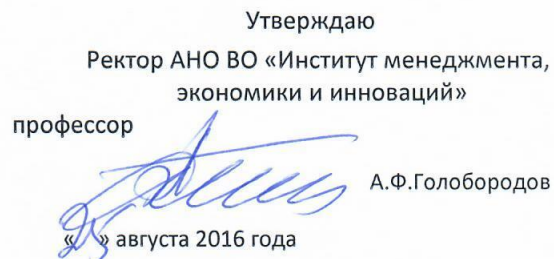 Утверждаю
Ректор АНО ВО «Институт менеджмента,
экономики и инноваций»
профессор
А.Ф.Голобородов
« » августа 2016 года